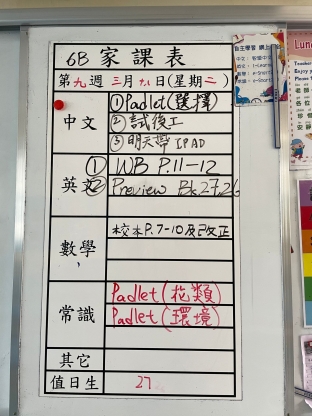 6B 家課表
第九週 三月十八日(星期二)
中文 ①Padlet(選擇)
②試後工
③明天帶IPAD
英文 ① WB P.11-12
② Preview Bk 27,26
數學 校本P.7-10及改正
常識 Padlet(花類)
Padlet(環境)
其它
值日生 27
自主學習